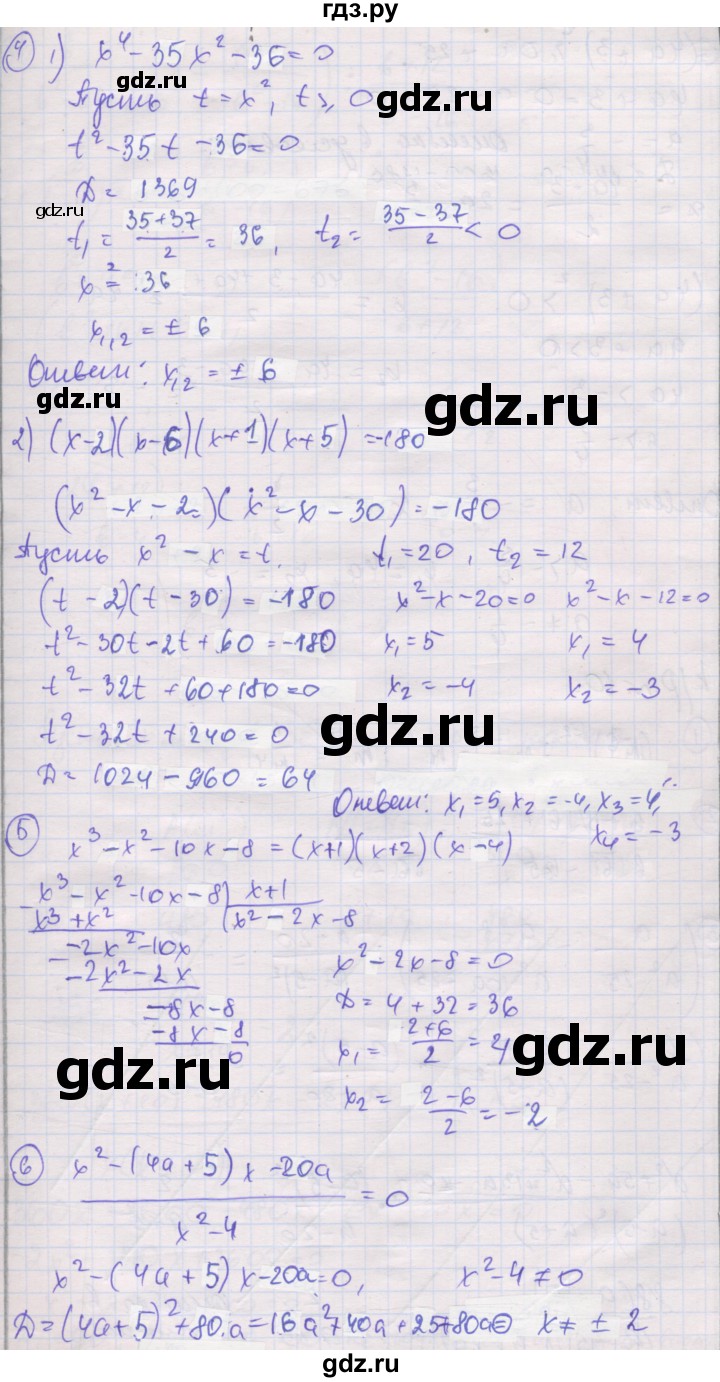 гдз.ру
④ 1) x⁴ - 35x² - 36 = 0
Пусть t = x², t ≥ 0
gdz.ru
t² - 35t - 36 = 0
gdz.ru
Д = 1369
t₁ = (35+37)/2 = 36, t₂ = (35-37)/2 < 0
x² = 36
gdz.ru
x₁,₂ = ± 6
gdz.ru
Ответ: x₁₂ = ± 6
gdz.ru
2) (x-2)(x-6)(x+1)(x+5) = -180
(x² - x - 2)(x² - x - 30) = -180
Пусть x² - x = t. t₁ = 20, t₂ = 12
(t - 2)(t - 30) = -180 x² - x - 20 = 0 x² - x - 12 = 0
t² - 30t - 2t + 60 = -180 x₁ = 5 x₁ = 4
t² - 32t + 60 + 180 = 0 x₂ = -4 x₂ = -3
gdz.ru
t² - 32t + 240 = 0
Д = 1024 - 960 = 64
Ответ: x₁ = 5, x₂ = -4, x₃ = 4,
x₄ = -3
⑤ x³ - x² - 10x - 8 = (x+1)(x+2)(x-4)
x³ - x² - 10x - 8 | x+1
x³ + x² | x² - 2x - 8
-2x² - 10x x² - 2x - 8 = 0
-2x² - 2x Д = 4 + 32 = 36
-8x - 8 x₁ = (2+6)/2 = 4
-8x - 8
0
gdz.ru
gdz.ru
x₂ = (2-6)/2 = -2
⑥ (x² - (4a+5)x - 20a)/(x² - 4) = 0
x² - (4a+5)x - 20a = 0, x² - 4 ≠ 0
Д = (4a+5)² + 80a = 16a² + 40a + 25 + 80a = x ≠ ± 2
gdz.ru